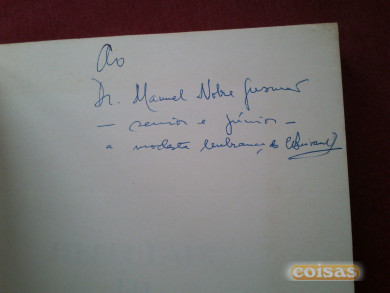 Ao
Dr. Manuel Nobre Gusmão
— senior e júnior —
a modesta lembrança do
coisas